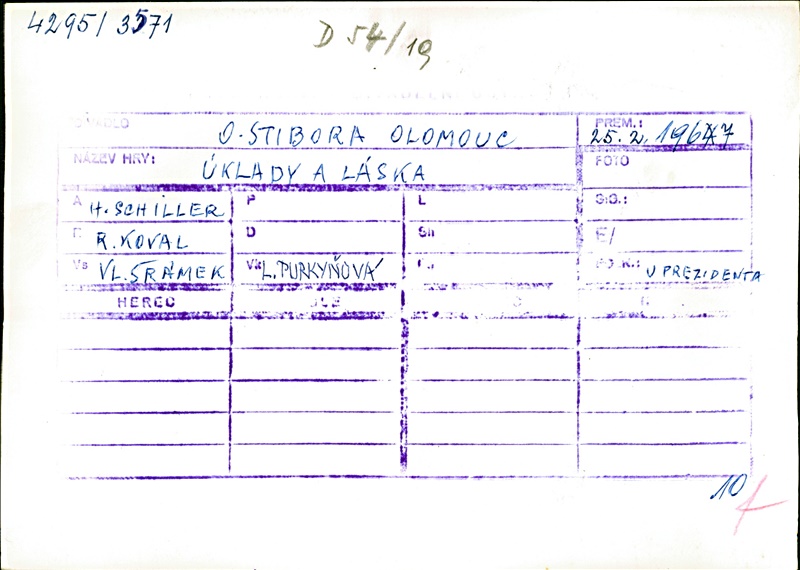 4295/3571
D 54/19
DIVADLO O. STIBORA OLOMOUC PREM.: 25. 2. 1967
NÁZEV HRY: ÚKLADY A LÁSKA FOTO
A H. SCHILLER P L SIG.:
R. KOVAL D Sh E/
Vs VL. ŠRÁMEK Vk L. PURKYŇOVÁ U PREZIDENTA
HEREC
10